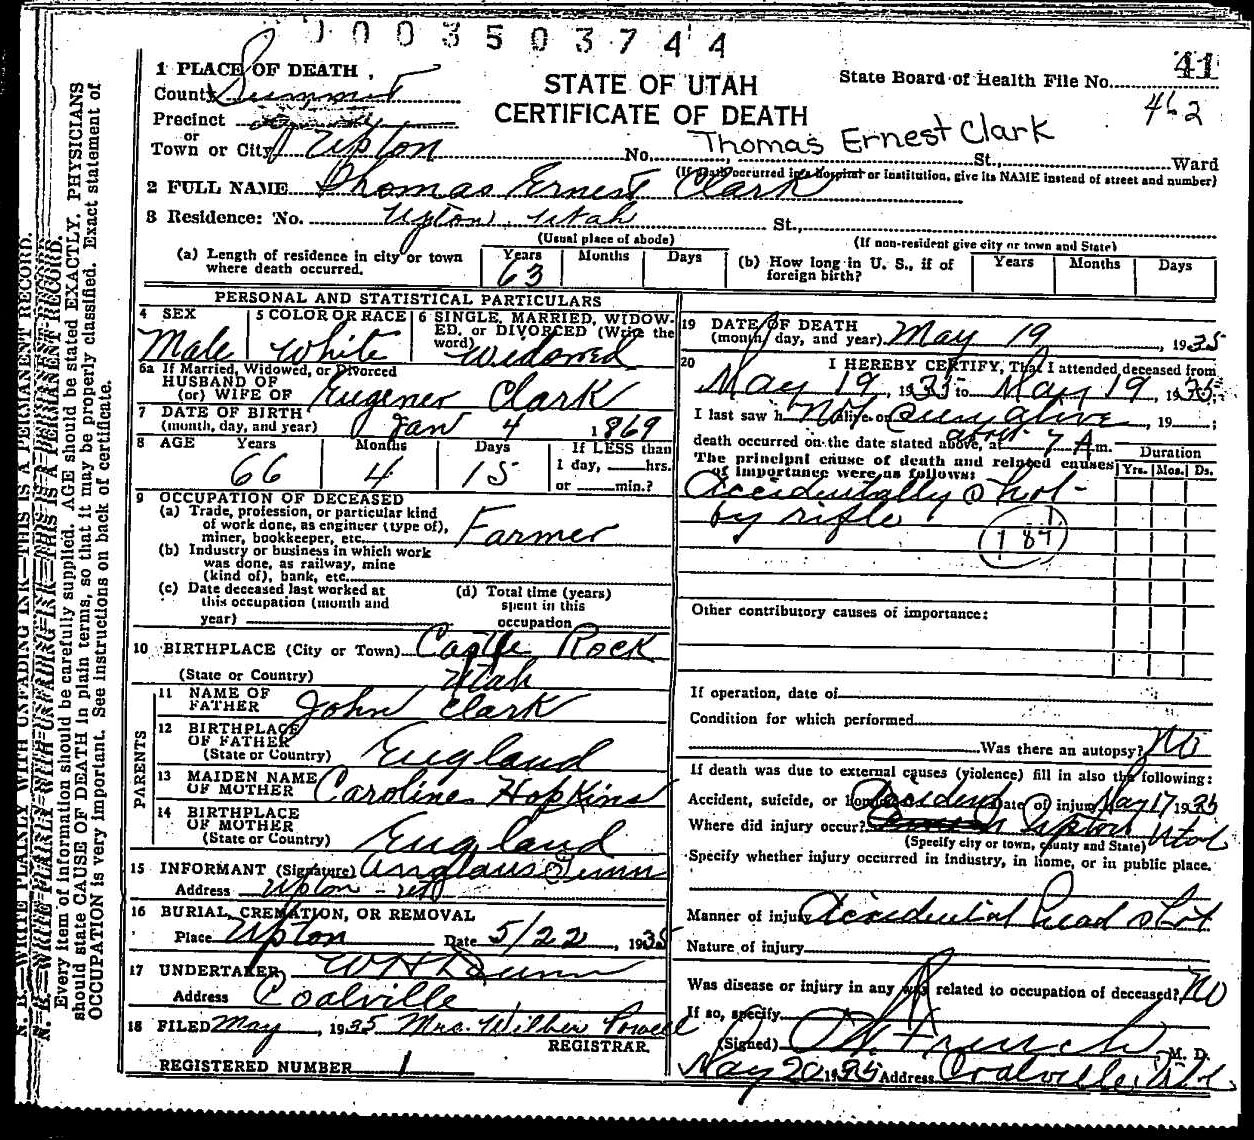 0003503744
41
STATE OF UTAH
CERTIFICATE OF DEATH
State Board of Health File No.
462
1 PLACE OF DEATH
County Summit
Precinct
or
Town or City Upton No. St., Ward
Thomas Ernest Clark
(If death occurred in a hospital or institution, give its NAME instead of street and number)
2 FULL NAME Thomas Ernest Clark
3 Residence: No. Upton, Utah St.,
(Usual place of abode) (If non-resident give city or town and State)
(a) Length of residence in city or town where death occurred. Years 63 Months Days
(b) How long in U. S., if of foreign birth? Years Months Days
PERSONAL AND STATISTICAL PARTICULARS
4 SEX Male
5 COLOR OR RACE White
6 SINGLE, MARRIED, WIDOWED, or DIVORCED (Write the word) Widowed
6a If Married, Widowed, or Divorced
HUSBAND OF
(or) WIFE OF Clark
7 DATE OF BIRTH
(month, day, and year) Jan 4 1869
8 AGE Years 66 Months 4 Days 15
If LESS than
1 day, hrs.
or min.?
9 OCCUPATION OF DECEASED
(a) Trade, profession, or particular kind
of work done, as engineer (type of),
miner, bookkeeper, etc. Farmer
(b) Industry or business in which work
was done, as railway, mine
(kind of), bank, etc.
(c) Date deceased last worked at
this occupation (month and
year)
(d) Total time (years)
spent in this
occupation
10 BIRTHPLACE (City or Town) Castle Rock
(State or Country) Utah
PARENTS
11 NAME OF
FATHER John Clark
12 BIRTHPLACE
OF FATHER
(State or Country) England
13 MAIDEN NAME
OF MOTHER Caroline Hopkins
14 BIRTHPLACE
OF MOTHER
(State or Country) England
15 INFORMANT (Signature)
Address Upton - Ut
16 BURIAL, CREMATION, OR REMOVAL
Place Upton Date 5/22, 1935
17 UNDERTAKER W H Dunn
Address Coalville
18 FILED May, 1935 Mrs. Wilber Powell
REGISTRAR.
REGISTERED NUMBER 1
19 DATE OF DEATH
(month, day, and year) May 19, 1935
20 I HEREBY CERTIFY, That I attended deceased from
May 19, 1935 to May 19, 1935
I last saw h Not alive on alive, 19 ;
death occurred on the date stated above, at 7 A m.
The principal cause of death and related causes
of importance were as follows:
Duration
Yrs. Mos. Ds.
Accidentally shot
by rifle
184
Other contributory causes of importance:
If operation, date of
Condition for which performed
Was there an autopsy? No
If death was due to external causes (violence) fill in also the following:
Accident, suicide, or homicide Accident Date of injury May 17 1935
Where did injury occur? Upton Utah
(Specify city or town, county and State)
Specify whether injury occurred in industry, in home, or in public place.
Manner of injury Accidential head shot
Nature of injury
Was disease or injury in any way related to occupation of deceased? No
If so, specify
(Signed) M. D.
May 20 1935 Address Coalville, Utah
N. B.—WRITE PLAINLY WITH UNFADING INK—THIS IS A PERMANENT RECORD.
N. B.—WRITE PLAINLY WITH UNFADING INK—THIS IS A PERMANENT RECORD.
Every item of information should be carefully supplied. AGE should be stated EXACTLY. PHYSICIANS
should state CAUSE OF DEATH in plain terms, so that it may be properly classified. Exact statement of
OCCUPATION is very important. See instructions on back of certificate.